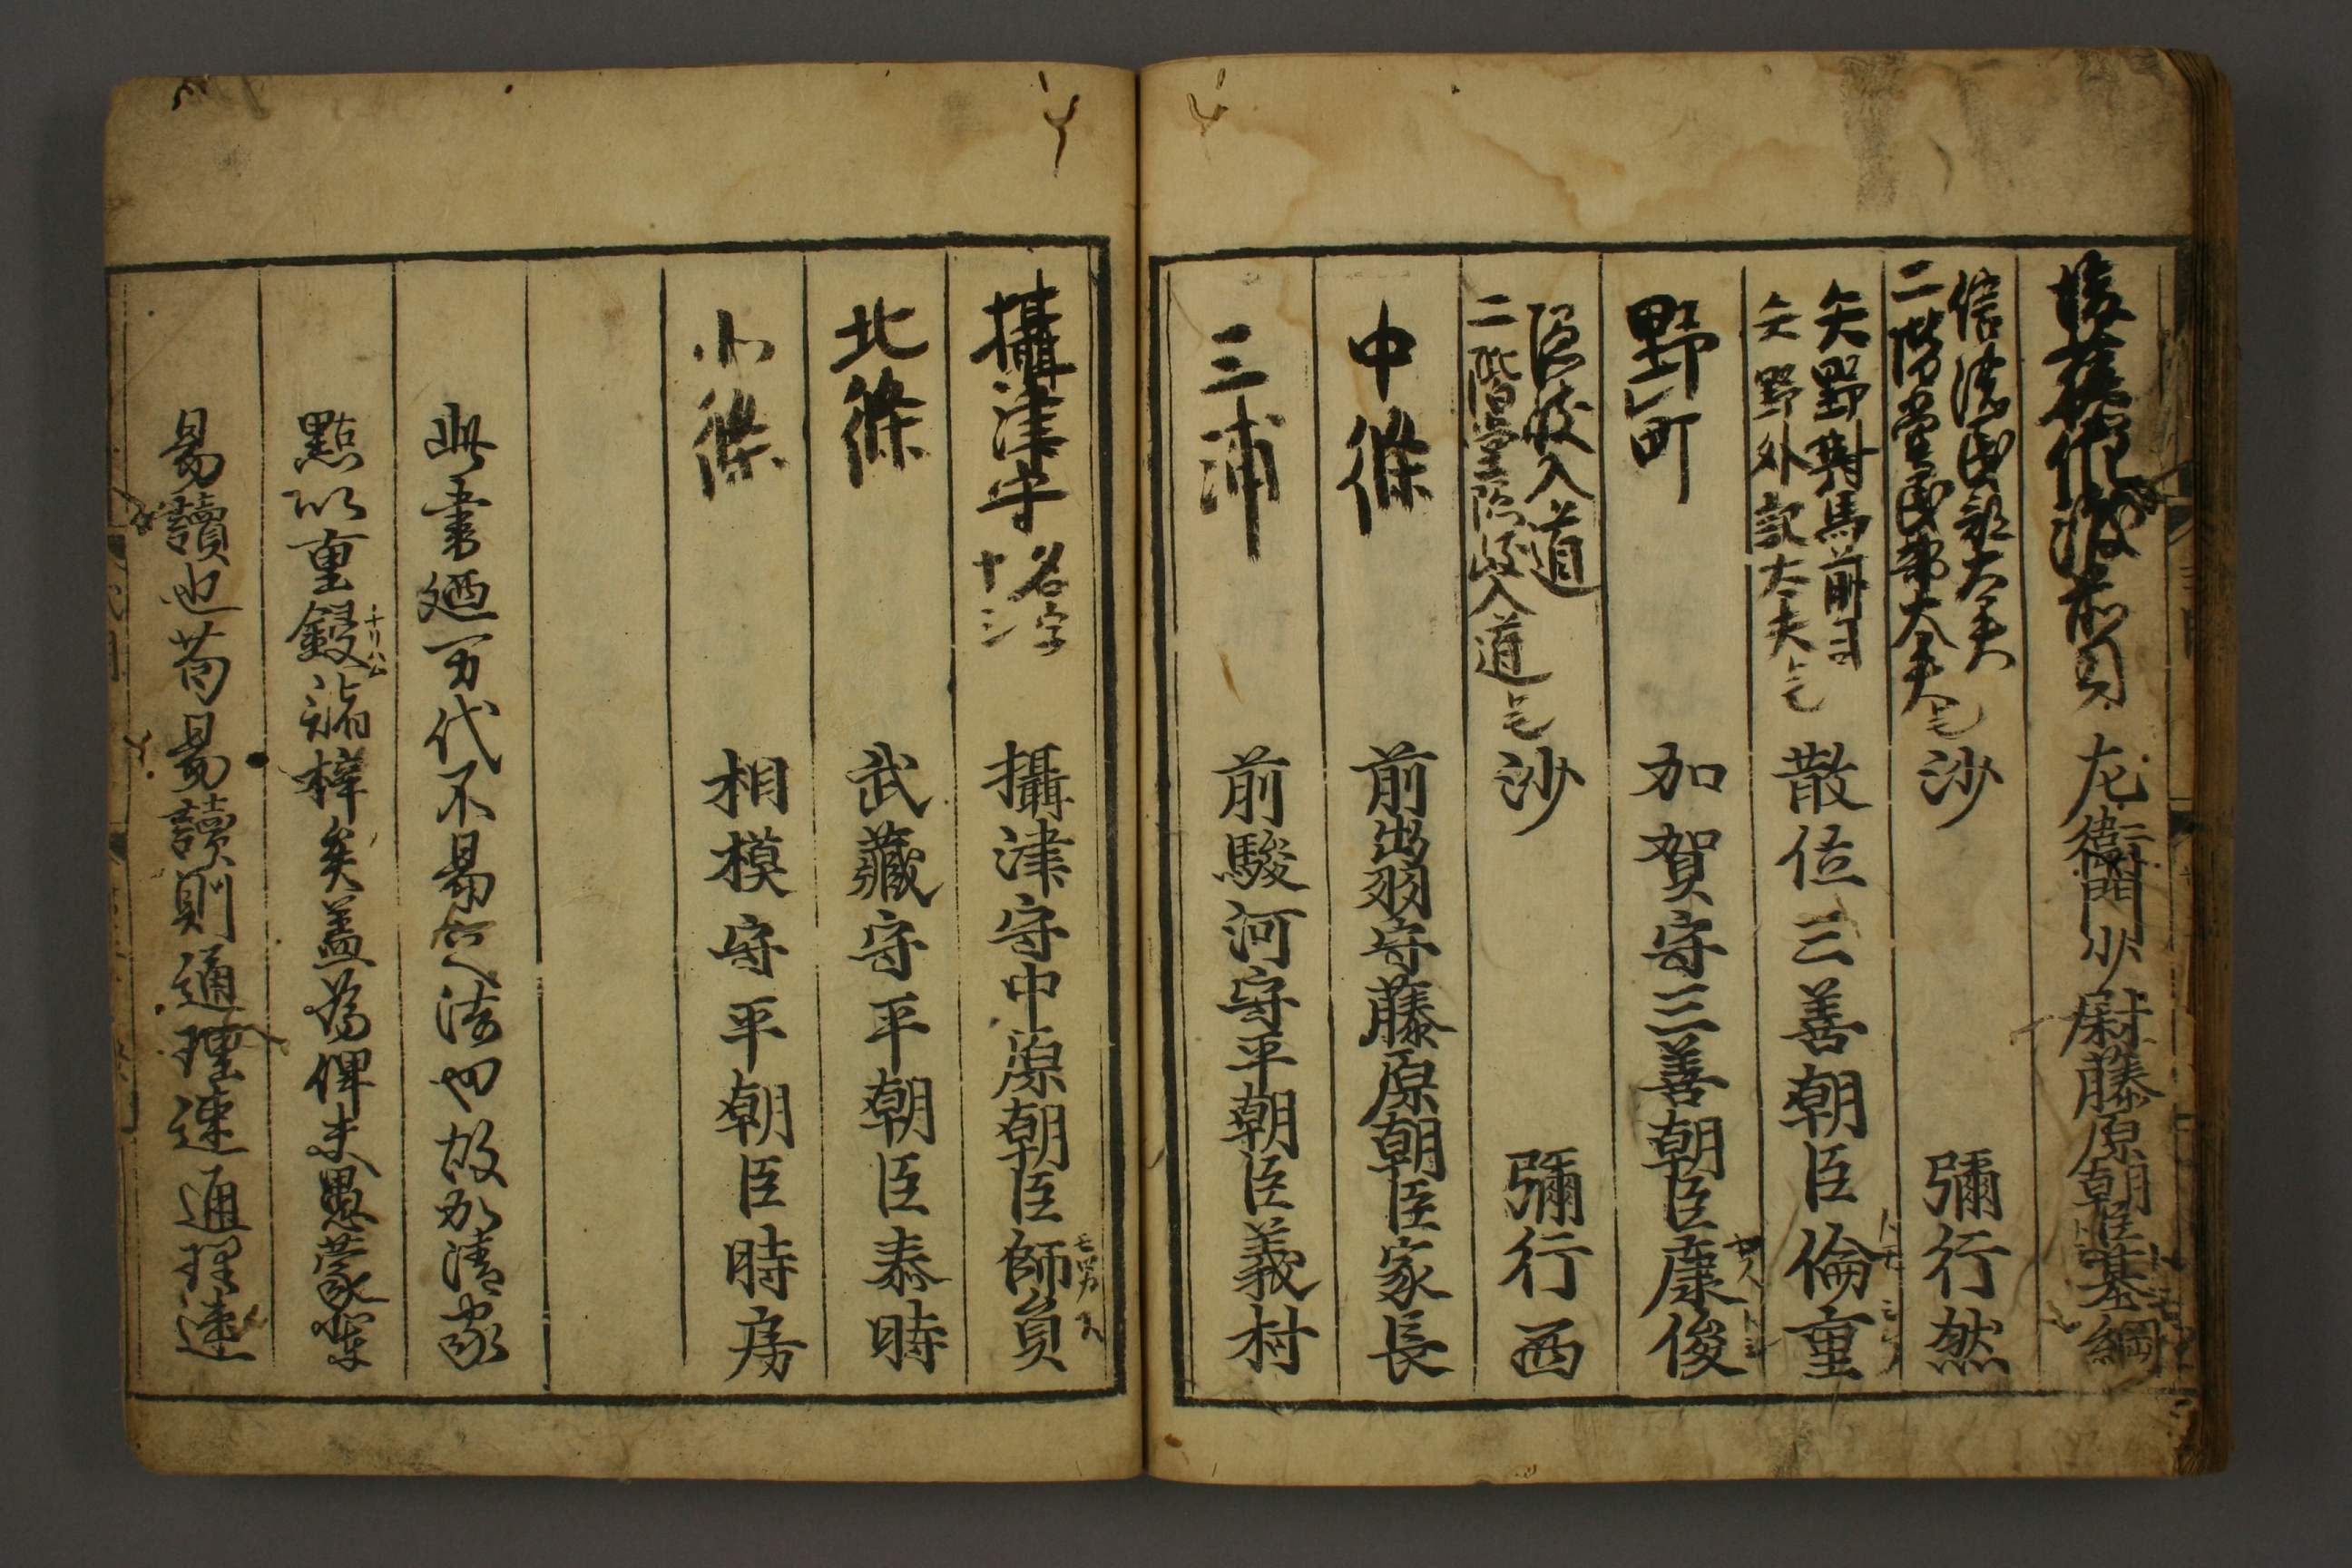 後藤佐渡前司 左衛門少尉藤原朝臣基綱
信濃民部大夫
二階堂民部大夫トモ 沙 彌行然
矢野對馬前司
矢野外記大夫トモ 散位三善朝臣倫重
野町 加賀守三善朝臣康俊
隠岐入道
二階堂隠岐入道トモ 沙 彌行西
中條 前出羽守藤原朝臣家長
三浦 前駿河守平朝臣義村
攝津守 名字 攝津守中原朝臣師員
北條 武藏守平朝臣泰時
小條 相模守平朝臣時房
此書廼万代不易之法也故加清家
點以重鋟諸梓矣盖為俾夫愚蒙輩
易讀也苟易讀則通理速通理速